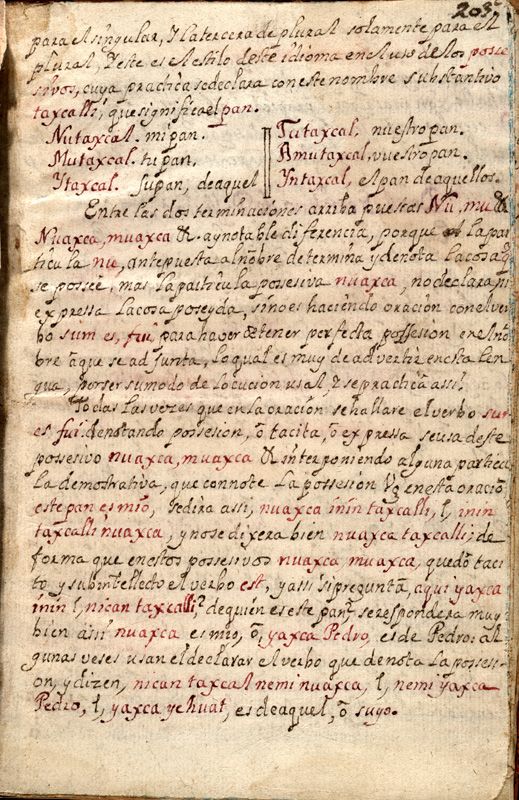 203
para el singular, Y la tercera de plural solamente para el
plural, Y este es el estilo deste idioma en el uso de los posse
sivos, cuya practica se declara con este nombre substantivo
taxcalli, que significa el pan.
Nutaxcal. mi pan. Tutaxcal, nuestro pan.
Mutaxcal. tu pan, Amutaxcal, vuestro pan.
Ytaxcal. su pan, de aquel Yntaxcal, el pan de aquellos.
Entre las dos terminaciones arriba puestas Nu, mu &
Nuaxca, muaxca &. ay notable diferencia, porque la par
ticula nu, antepuesta al nõbre determina y denota la cosa q̃
se possee, mas la paiticula possesiva nuaxca, no declara, ni
expressa la cosa poseyda, sino es haciendo oración con el ver
bo sum es, fui, para haver de tener perfecta possession en el nõ
bre a que se adjunta, lo qual es muy de advertir en esta len
gua, por ser su modo de locucion usal, y se practica assi.
Todas las veses que en la oración se hallare el verbo sum
es fui denotando possesion, õ tacita, õ expressa se usa deste
possesivo nuaxca, muaxca & interponiendo alguna particu
la demostrativa, que connote la possesion Vg en esta oració
este pan es mio, se dira assi, nuaxca inin taxcalli, l, inin
taxcalli nuaxca, y no se dixera bien nuaxca taxcalli; de
forma que en estos possesivos nuaxca muaxca, quedó taci
to, y subintellecto el verbo est, y assi si preguntã, aqui yaxca
inin l, nican taxcalli? de quién es este pan? se respondera muy
bien assi nuaxca es mio, õ, yaxca Pedro, es de Pedro: al
gunas veses usan el declarar el verbo que denota la possess-
on, y dizen, nican taxcal nemi nuaxca, l, nemi yaxca
Pedro, l, yaxca yehuat, es de aquel, õ suyo.